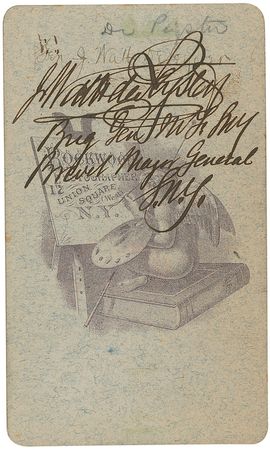 De Peyster
Gen J Watts De Peyster
J Watts de Peyster
Brig Gen M.F. S.N.Y
Brevet Major General
S.N.Y.
ROCKWOOD
PHOTOGRAPHER
17
UNION
SQUARE
(West)
N.Y.